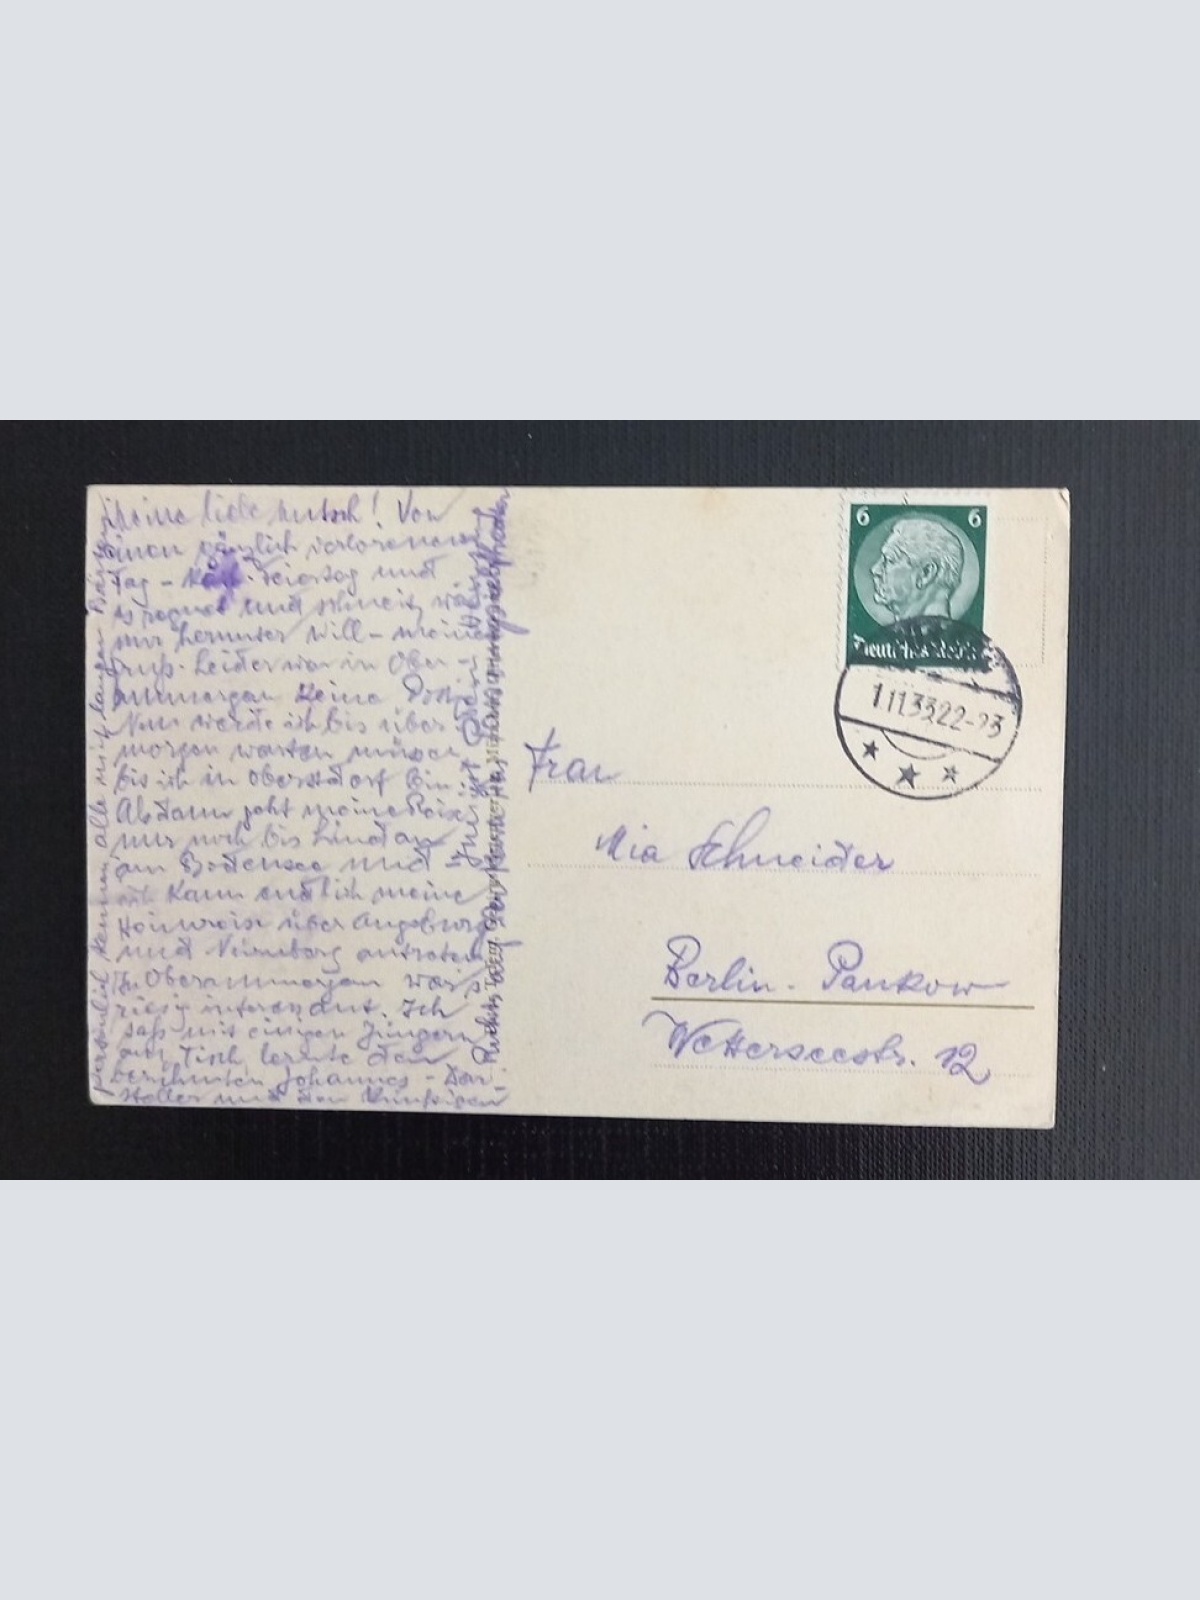 Meine liebe Mutsch! Von
einen gänzlich verlorenen
Tag - Feiertag und
es regnet und schneit, was
nur herunter will - meine
Leider war in Ober-
ammergau keine Post
Nun werde ich bis über-
morgen warten müssen
bis ich in Oberstdorf bin.
Alsdann geht meine Reise
nur noch bis Lindau
am Bodensee und
kann endlich meine
Heimreise über Augsburg
und Nürnberg antreten
In Oberammergau war's
riesig interessant. Ich
saß mit einigen Jüngern
am Tisch lernte den
berühmten Johannes - Dar-
steller und den künftigen
persönlich kennen alle mit langen
6 6
Deutsches Reich
1.11.33.22-23
Frau
Mia Schneider
Berlin - Pankow
Wetterseestr. 12